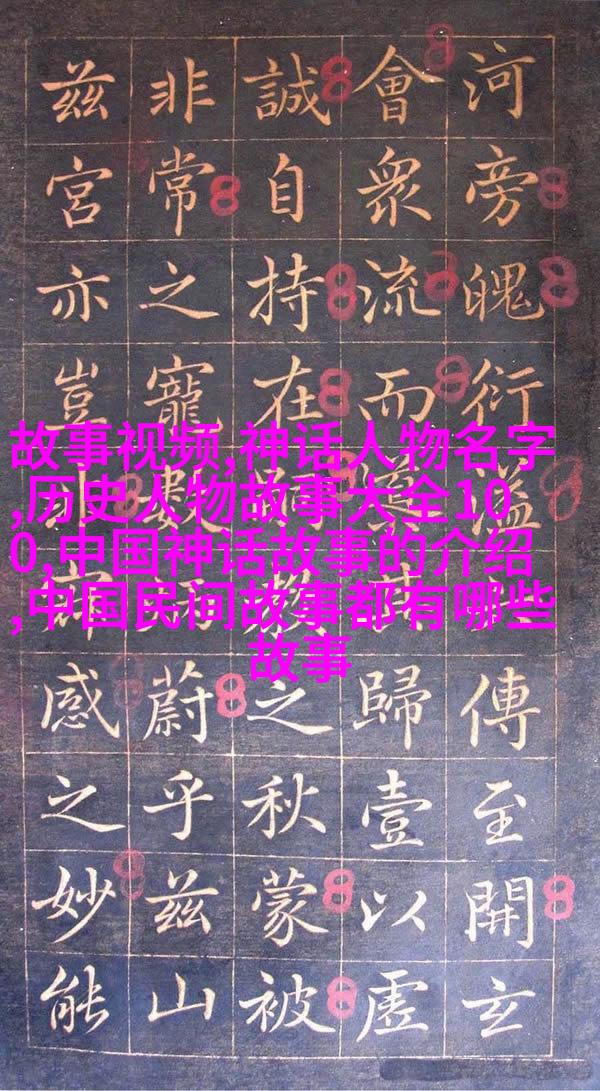 故事视频,神话人物名字
,历史人物故事大全10
0,中国神话故事的介绍
,中国民间故事都有哪些
故事
河旁魄衍溢傳至開玄
會衆流而歸壹以虛
誠自持在之秋蒙被
非常之寵數蔚乎茲山
茲宮亦豈感之妙能